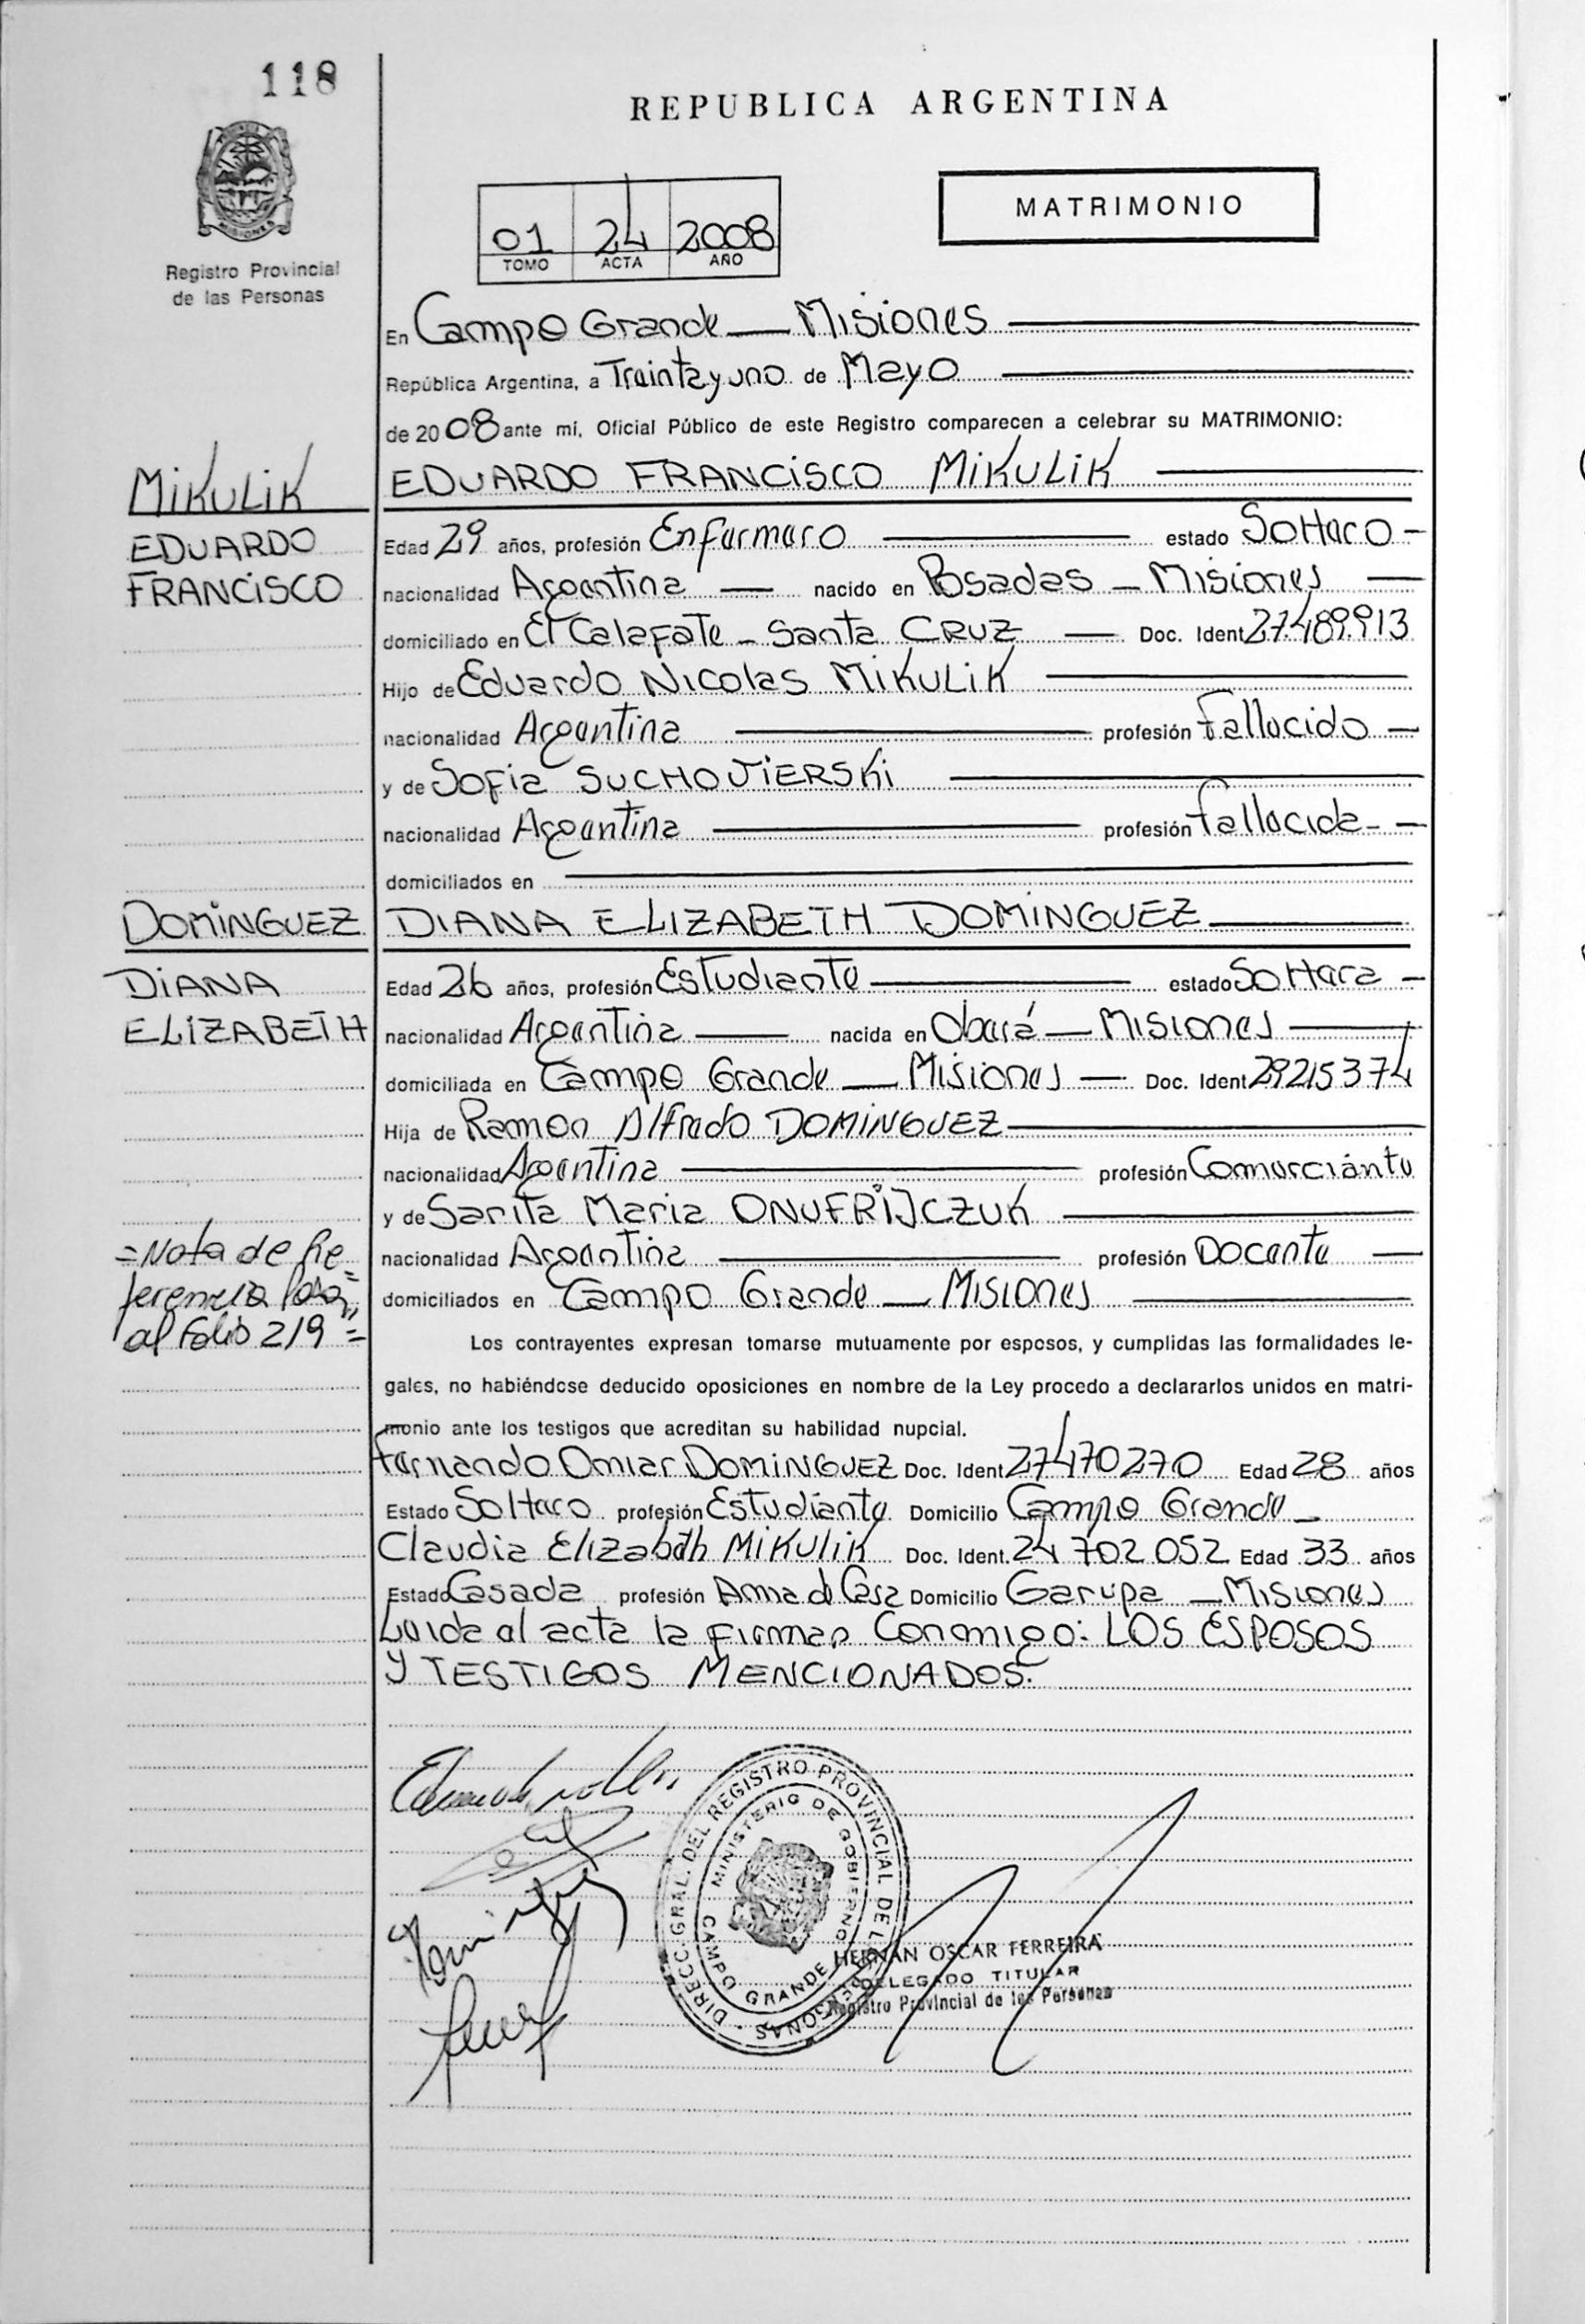 118
REPUBLICA ARGENTINA
MISIONES
Registro Provincial
de las Personas
01 24 2008
TOMO ACTA AÑO
MATRIMONIO
En Campo Grande — Misiones
República Argentina, a Treinta y uno de Mayo
de 2008 ante mí, Oficial Público de este Registro comparecen a celebrar su MATRIMONIO:
MIKULIK
EDUARDO FRANCISCO MIKULIK
EDUARDO
FRANCISCO
Edad 29 años, profesión Enfermero estado Soltero -
nacionalidad Argentina — nacido en Posadas - Misiones
domiciliado en El Calafate - Santa CRUZ — Doc. Ident 27.489.913
Hijo de Eduardo Nicolas MIKULIK
nacionalidad Argentina profesión Fallecido -
y de Sofia SUCHOJIERSKI
nacionalidad Argentina profesión Fallecida -
domiciliados en
DOMINGUEZ
DIANA ELIZABETH DOMINGUEZ
DIANA
ELIZABETH
Edad 26 años, profesión Estudiante estado Soltera -
nacionalidad Argentina — nacida en Oberá — Misiones
domiciliada en Campo Grande — Misiones — Doc. Ident 29215374
Hija de Ramon Alfredo DOMINGUEZ
nacionalidad Argentina profesión Comerciante
y de Sarita Maria ONUFRIJCZUK
nacionalidad Argentina profesión Docente
domiciliados en Campo Grande — Misiones
=Nota de Re=
ferencia Pasa
al Folio 219=
Los contrayentes expresan tomarse mutuamente por esposos, y cumplidas las formalidades le-
gales, no habiéndose deducido oposiciones en nombre de la Ley procedo a declararlos unidos en matri-
monio ante los testigos que acreditan su habilidad nupcial.
Fernando Omar DOMINGUEZ Doc. Ident 27470270 Edad 28 años
Estado Soltero profesión Estudiante Domicilio Campo Grande -
Claudia Elizabeth MIKULIK Doc. Ident. 24 702 052 Edad 33 años
Estado Casada profesión Ama de Casa Domicilio Garupa - Misiones
Leida el acta la firman Conmigo: LOS ESPOSOS
Y TESTIGOS MENCIONADOS.
DIRECC. GRAL. DEL REGISTRO PROVINCIAL DE LAS PERSONAS
MINISTERIO DE GOBIERNO
CAMPO GRANDE
HERNAN OSCAR FERREIRA
DELEGADO TITULAR
Registro Provincial de las Personas